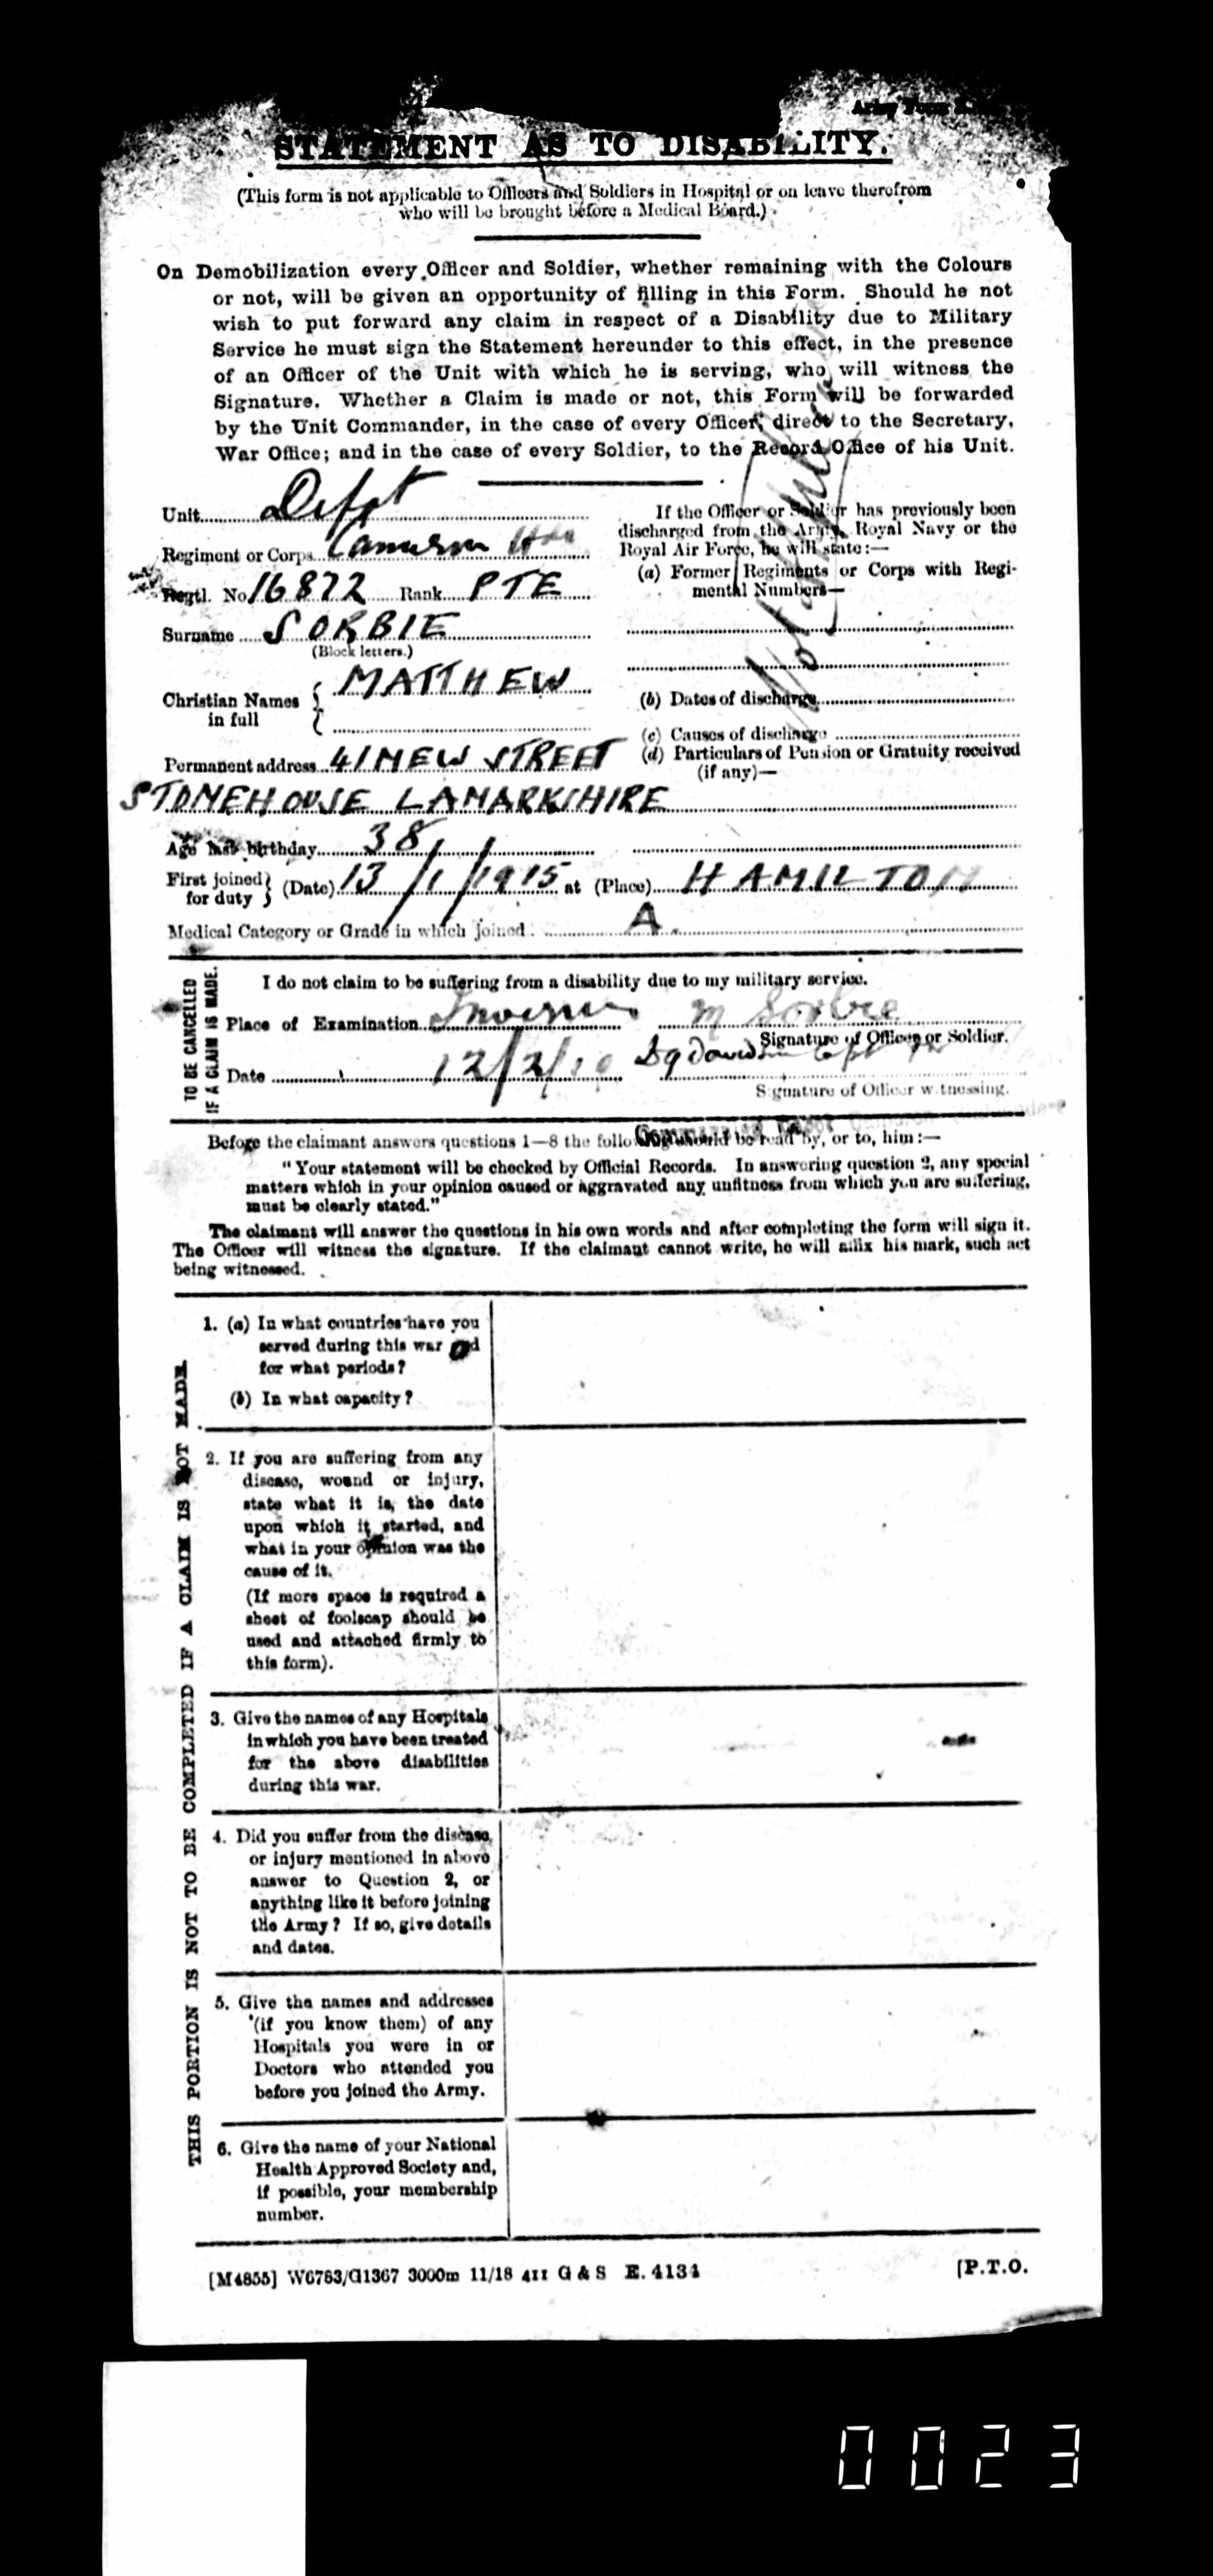 Army Form
STATEMENT AS TO DISABILITY.
(This form is not applicable to Officers and Soldiers in Hospital or on leave therefrom
who will be brought before a Medical Board.)
On Demobilization every Officer and Soldier, whether remaining with the Colours
or not, will be given an opportunity of filling in this Form. Should he not
wish to put forward any claim in respect of a Disability due to Military
Service he must sign the Statement hereunder to this effect, in the presence
of an Officer of the Unit with which he is serving, who will witness the
Signature. Whether a Claim is made or not, this Form will be forwarded
by the Unit Commander, in the case of every Officer, direct to the Secretary,
War Office; and in the case of every Soldier, to the Record Office of his Unit.
Unit Depot
Regiment or Corps Cameron
Regtl. No 16872 Rank PTE
Surname SORBIE
(Block letters.)
Christian Names in full MATTHEW
Permanent address 41 NEW STREET
STONEHOUSE LANARKSHIRE
If the Officer or Soldier has previously been
discharged from the Army, Royal Navy or the
Royal Air Force, he will state:—
(a) Former Regiments or Corps with Regi-
mental Numbers—
Not
(b) Dates of discharge
(c) Causes of discharge
(d) Particulars of Pension or Gratuity received
(if any)—
Age last birthday 38
First joined for duty (Date) 13/1/1915 at (Place) HAMILTON
Medical Category or Grade in which joined A
TO BE CANCELLED
IF A CLAIM IS MADE.
I do not claim to be suffering from a disability due to my military service.
Place of Examination M Sorbie
Signature of Officer or Soldier.
Date 12/2/19
Signature of Officer witnessing.
Before the claimant answers questions 1—8 the following should be read by, or to, him:—
"Your statement will be checked by Official Records. In answering question 2, any special
matters which in your opinion caused or aggravated any unfitness from which you are suffering,
must be clearly stated."
The claimant will answer the questions in his own words and after completing the form will sign it.
The Officer will witness the signature. If the claimant cannot write, he will affix his mark, such act
being witnessed.
THIS PORTION IS NOT TO BE COMPLETED IF A CLAIM IS NOT MADE.
1. (a) In what countries have you
served during this war and
for what periods?
(b) In what capacity?
2. If you are suffering from any
disease, wound or injury,
state what it is, the date
upon which it started, and
what in your opinion was the
cause of it.
(If more space is required a
sheet of foolscap should be
used and attached firmly to
this form).
3. Give the names of any Hospitals
in which you have been treated
for the above disabilities
during this war.
4. Did you suffer from the disease,
or injury mentioned in above
answer to Question 2, or
anything like it before joining
the Army? If so, give details
and dates.
5. Give the names and addresses
(if you know them) of any
Hospitals you were in or
Doctors who attended you
before you joined the Army.
6. Give the name of your National
Health Approved Society and,
if possible, your membership
number.
[M4855] W6783/G1367 3000m 11/18 411 G & S E. 4134 [P.T.O.
0023